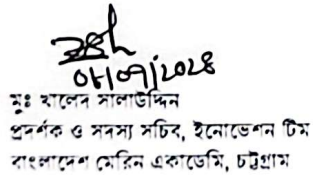 ০৮/০৭/২০২৪
মুঃ খালেদ সালাউদ্দিন
প্রদর্শক ও সদস্য সচিব, ইনোভেশন টিম
বাংলাদেশ মেরিন একাডেমি, চট্টগ্রাম